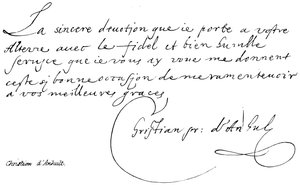 La sincere deuotion que ie porte a vostre
Altesse avec le fidel et bien humble
seruice que ie vous ay voue me donnent
ceste si bonne occasion de me ramenteuoir
a vos meilleures graces
Christian pr: d'Anhalt
Christian d'Anhalt.